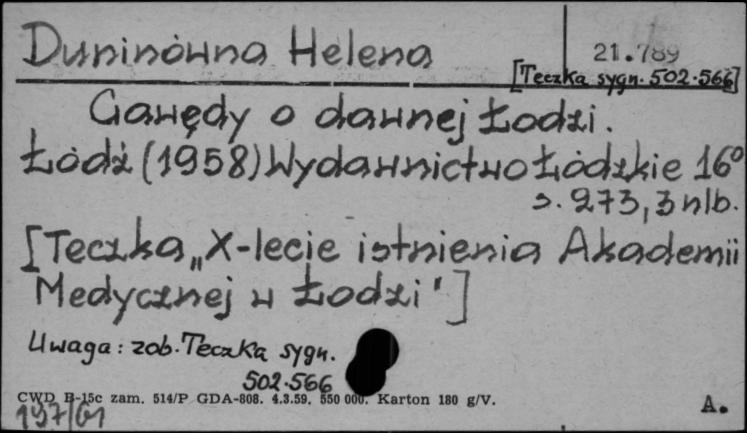 Duninówna Helena
21.789
[Teczka sygn. 502.566]
Gawędy o dawnej Łodzi.
Łódź (1958) Wydawnictwo Łódzkie 16°
s. 273, 3 nlb.
[Teczka „X-lecie istnienia Akademii
Medycznej w Łodzi"]
Uwaga: zob. Teczka sygn.
502.566
CWD B-15c zam. 514/P GDA-808. 4.3.59. 550 000. Karton 180 g/V.
197/61
A.